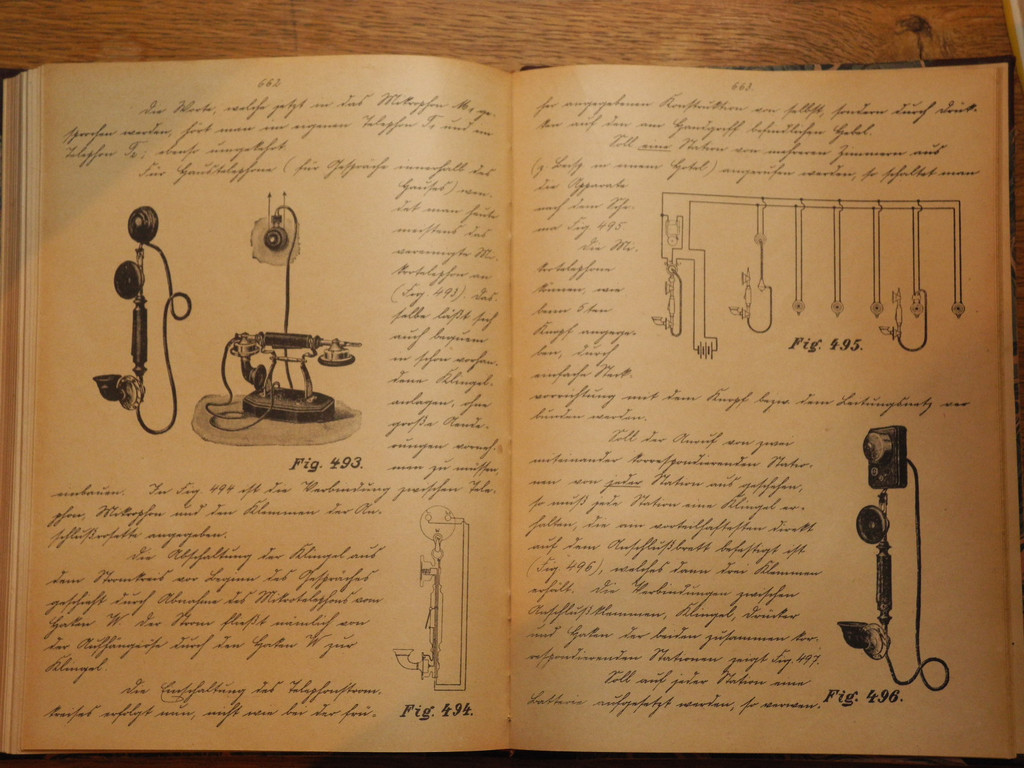 662
Die Worte, welche jetzt in das Mikrophon M₁ ge-
sprochen werden, hört man im eigenen Telephon T₁ und im
Telephon T₂; ebenso umgekehrt.
Für Haustelephone (für Gespräche innerhalb des
Hauses) wen-
det man heute
meistens das
vereinigte Mi-
krotelephon an
(Fig. 493). Das-
selbe läßt sich
auch bequem
in schon vorhan-
dene Klingel-
anlagen, ohne
große Aende-
rungen vorneh-
men zu müssen,
Fig. 493.
einbauen. In Fig. 494 ist die Verbindung zwischen Tele-
phon, Mikrophon und den Klemmen der An-
schlußrosette angegeben.
Die Abschaltung der Klingel aus
dem Stromkreis vor Beginn des Gespräches
geschieht durch Abnahme des Mikrotelephons vom
Haken W. Der Strom fließt nämlich von
der Aufhängeöse durch den Haken W zur
Klingel.
Die Einschaltung des Telephonstrom-
kreises erfolgt nun, nicht wie bei der frü-
Fig. 494.
663.
her angegebenen Konstruktion von selbst, sondern durch Drük-
ken auf den am Handgriff befindlichen Hebel.
Soll eine Station von mehreren Zimmern aus
(z. Beisp. in einem Hotel) angerufen werden, so schaltet man
die Apparate
nach dem Sche-
ma Fig. 495.
Die Mi-
krotelephone
können, wie
beim 5ten
Knopf angege-
ben, durch
einfache Steck-
Fig. 495.
vorrichtung mit dem Knopf bezw. dem Leitungsnetz ver
bunden werden.
Soll der Anruf von zwei
miteinander korrespondierenden Statio-
nen von jeder Station aus geschehen,
so muß jede Station eine Klingel er-
halten, die am vorteilhaftesten direkt
auf dem Anschlußbrett befestigt ist
(Fig. 496), welches dann drei Klemmen
erhält. Die Verbindungen zwischen
Anschlußklemmen, Klingel, Drücker
und Haken der beiden zusammen kor-
respondierenden Stationen zeigt Fig. 497.
Soll auf jeder Station eine
Batterie aufgesetzt werden, so verwen-
Fig. 496.